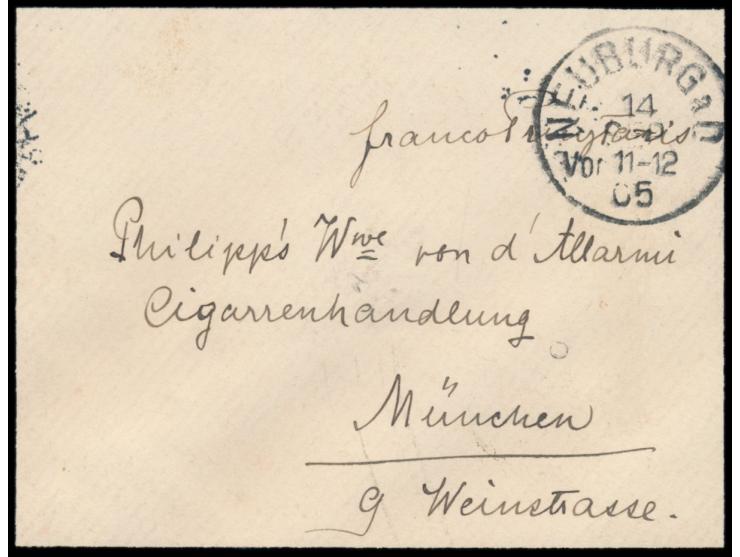 NEUBURG a D
14
Vor 11-12
05
franco
Philipp's Wwe von d'Allarmi
Cigarrenhandlung
München
9 Weinstrasse.